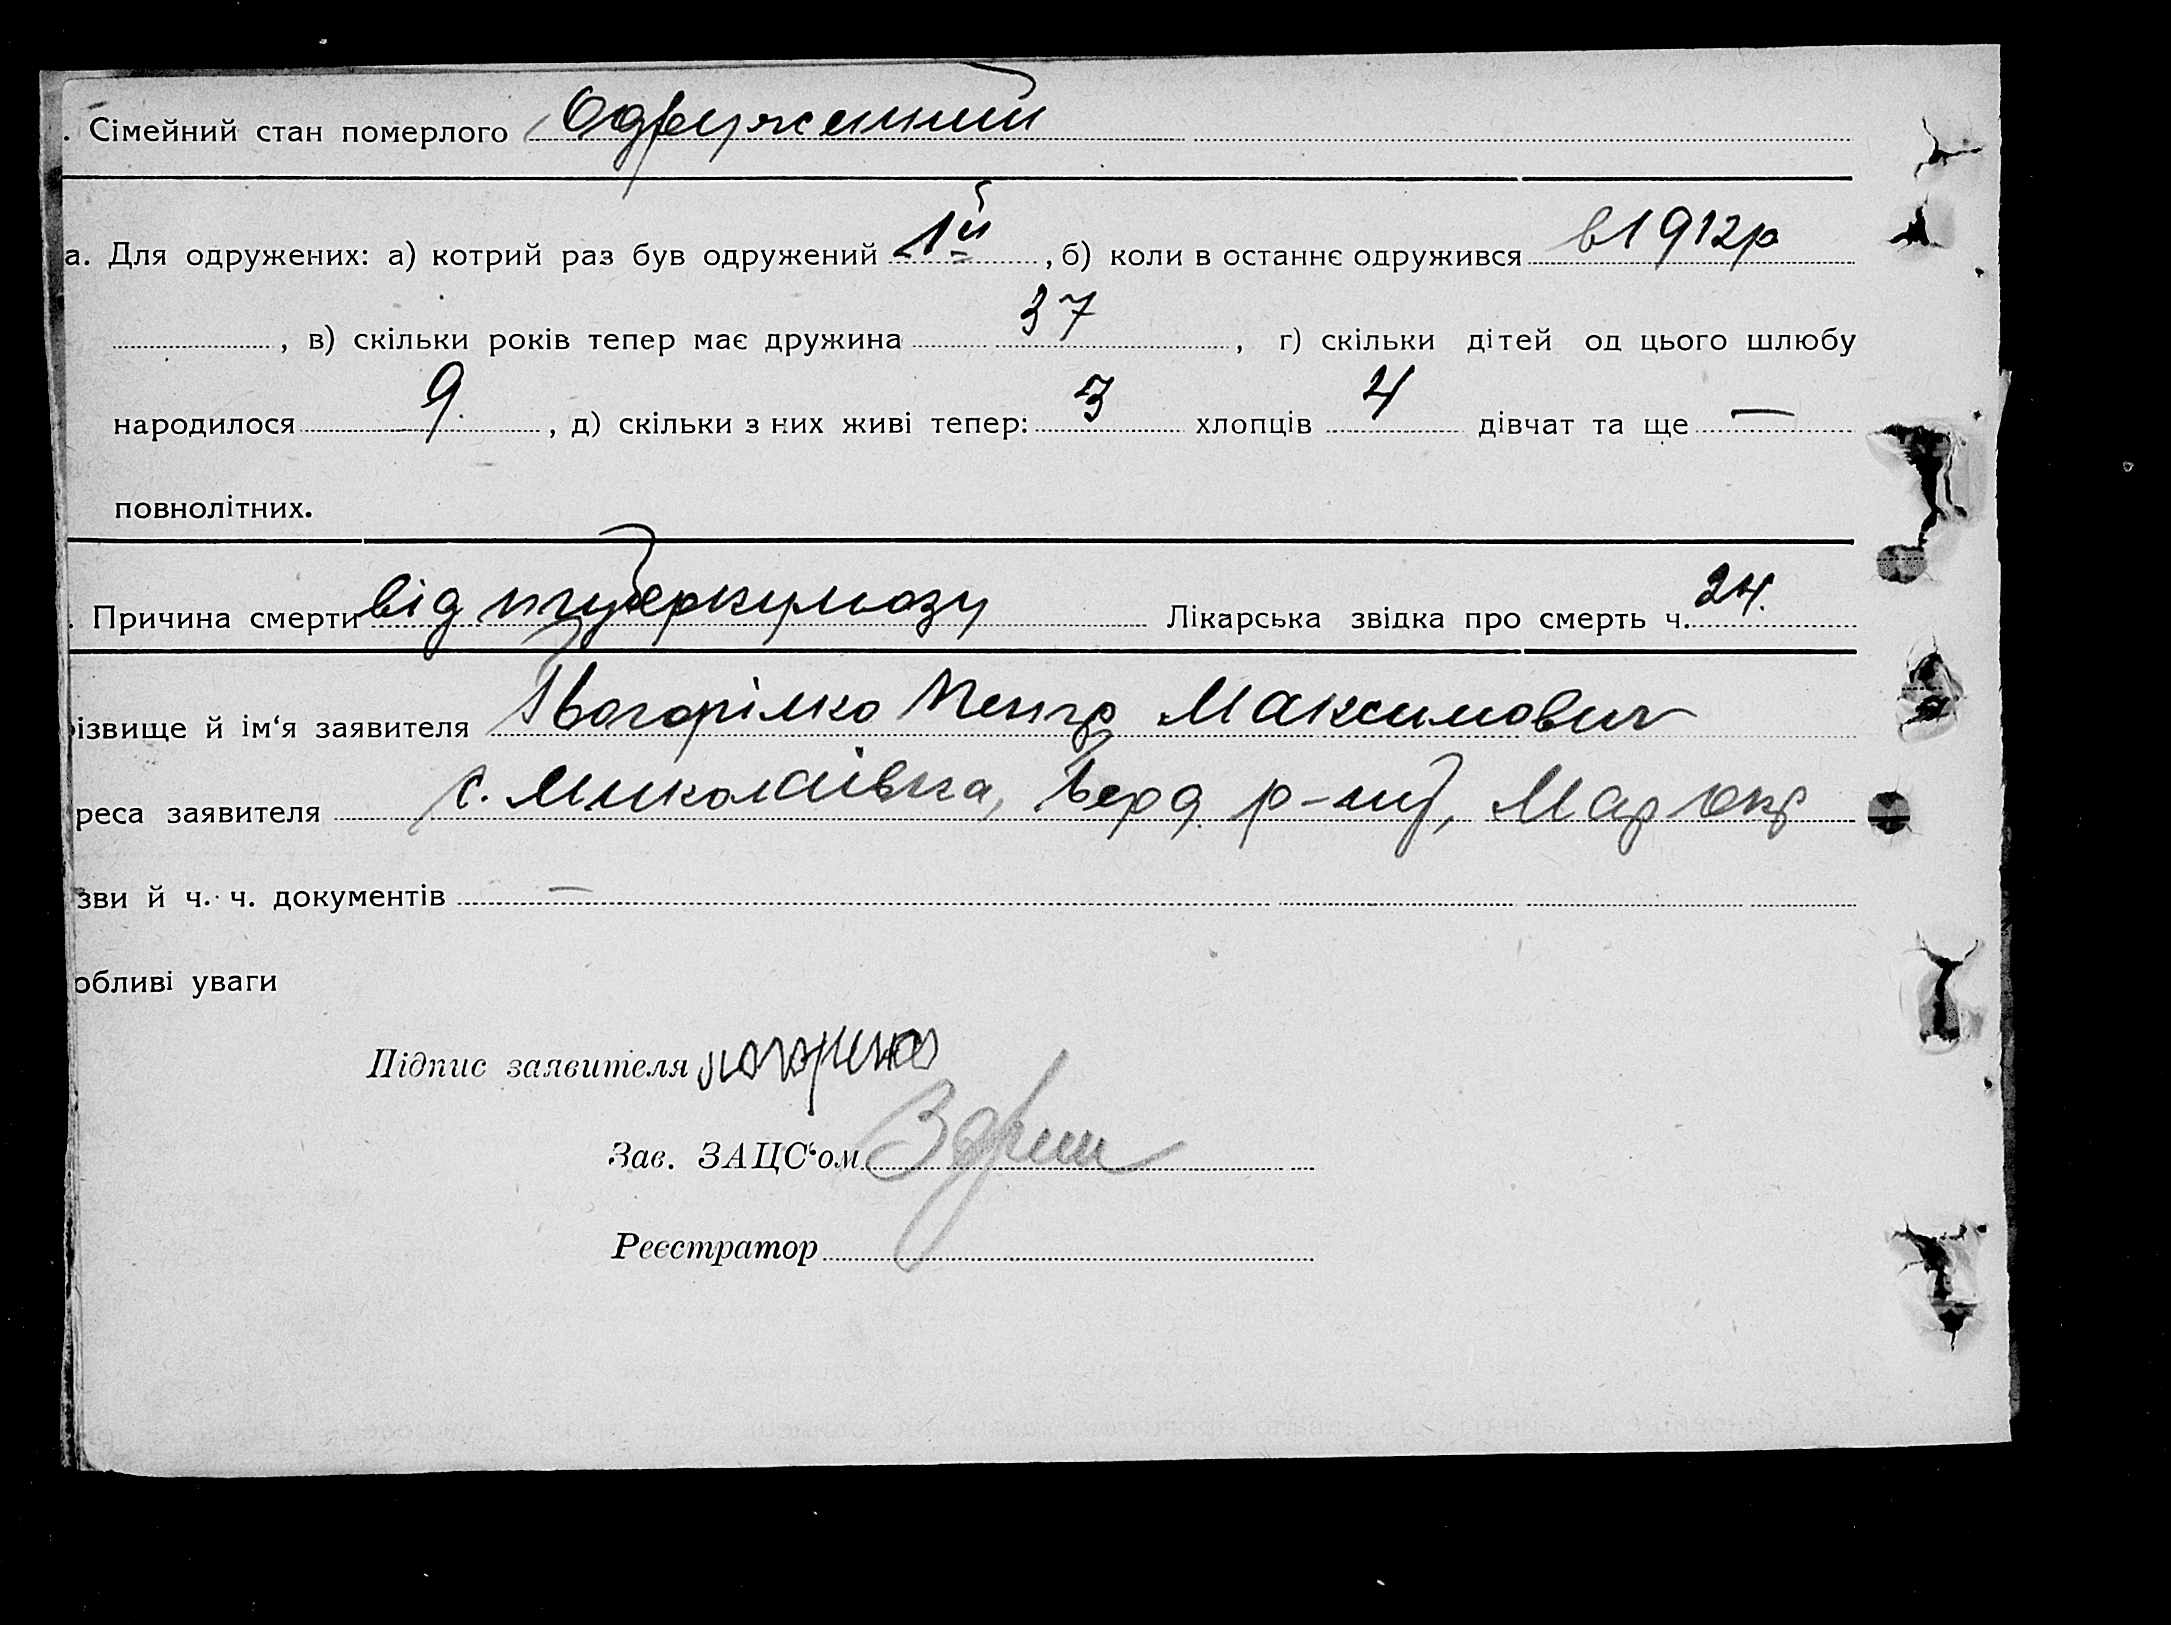 . Сімейний стан померлого Одружений
а. Для одружених: а) котрий раз був одружений 1й, б) коли в останнє одружився в 1912р
, в) скільки років тепер має дружина 37, г) скільки дітей од цього шлюбу
народилося 9, д) скільки з них живі тепер: 3 хлопців 4 дівчат та ще —
повнолітних.
. Причина смерти від туберкульозу Лікарська звідка про смерть ч. 24.
ізвище й ім‘я заявителя Петро Максимович
реса заявителя с. Миколаївка, Берд. р-ну, Мар окр
зви й ч. ч. документів —
обливі уваги
Підпис заявителя
Зав. ЗАЦС‘ом
Реєстратор